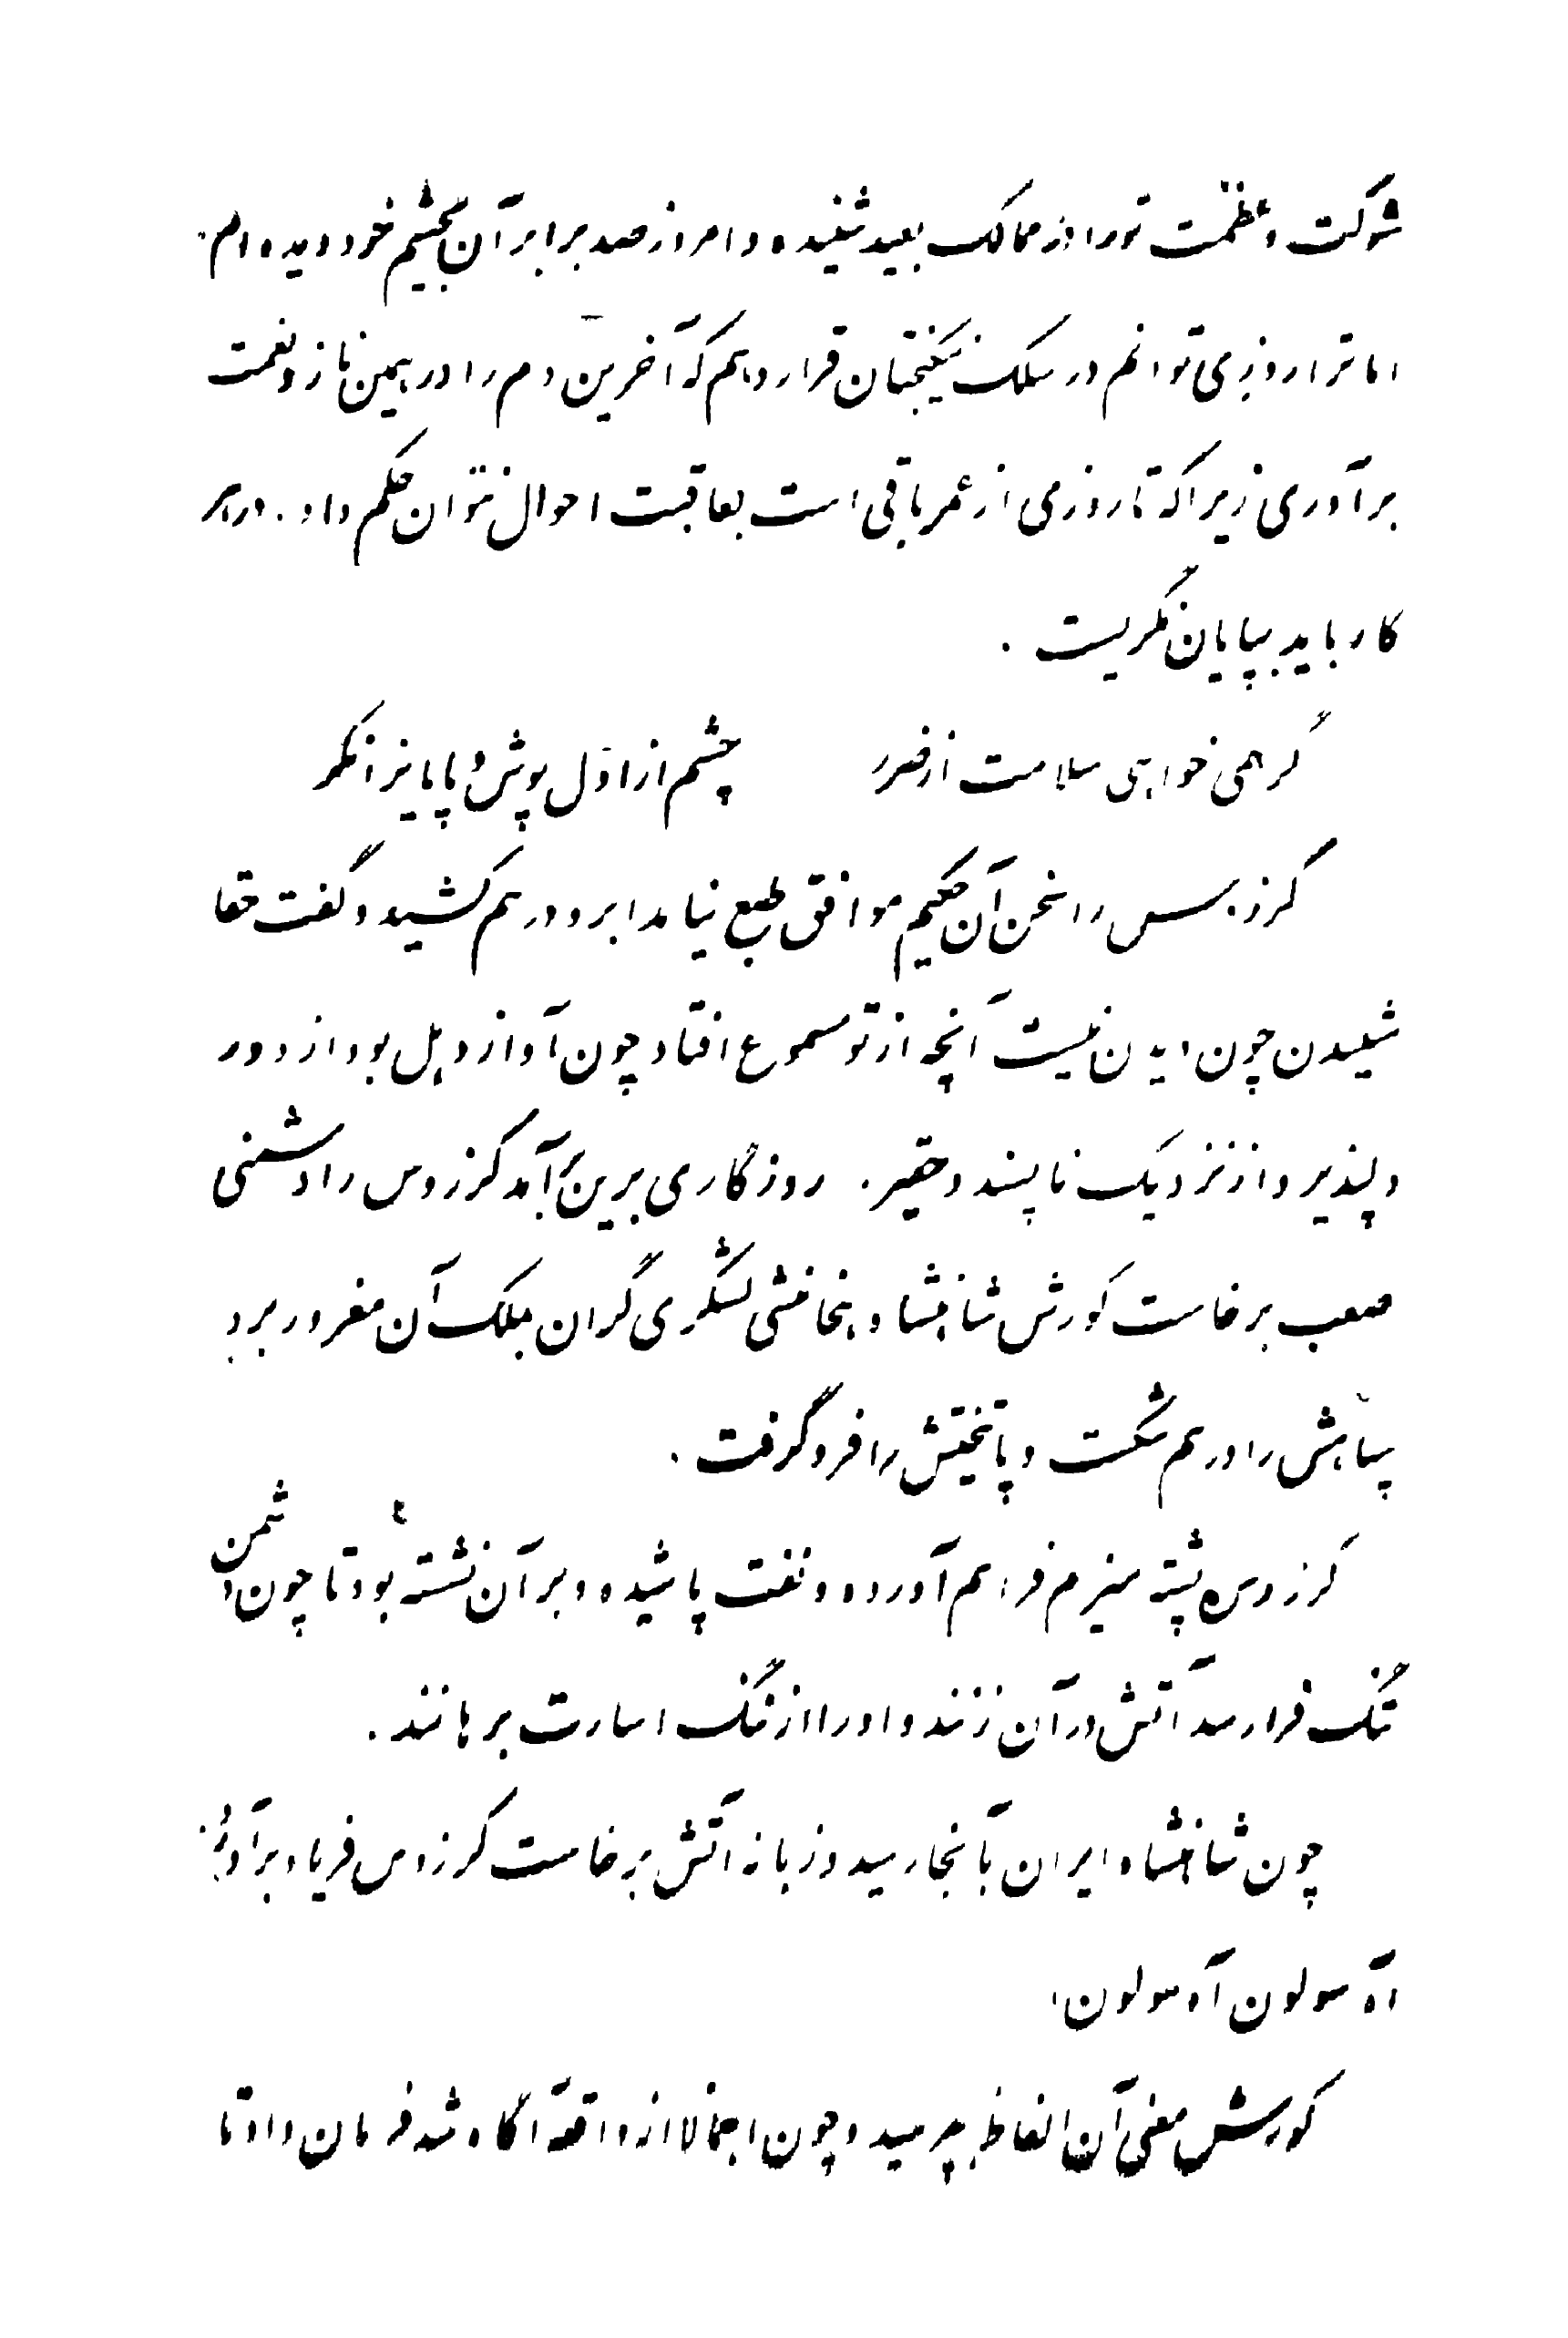 شوکت و عظمت تو را در ممالک بعید شنیده و امروز صد برابر آن بچشم خود دیده ام.
اما ترا روزی توانم در سلک نیکبختان قرار دهم که آخرین دم را در همین ناز و نعمت
برآوری زیرا که تا روزی از عمر باقی است بعاقبت احوال نتوان حکم داد. در هر
کار باید بپایان نگریست .
گر همی خواهی سلامت از ضرر چشم از اول پوش و پایانرا نگر
کرزوس را سخن آن حکیم موافق طبع نیامد ابرو درهم کشید و گفت حقا
شنیدن چون دیدن نیست آنچه از تو مسموع افتاد چون آواز دهل بود از دور
دلپذیر و از نزدیک ناپسند و حقیر. روزگاری برین برآمد کرزوس را دشمنی
صعب برخاست کورش شاهنشاه هخامنشی لشکری گران بملک آن مغرور برد
سپاهش را درهم شکست و پایتختش را فرو گرفت .
کرزوس پشته هیزم فراهم آورده و نفت پاشیده و بر آن نشسته بود تا چون دشمن
تنگ فرا رسد آتش در آن زنند و او را از ننگ اسارت برهانند .
چون شاهنشاه ایران بآنجا رسید و زبانه آتش برخاست کرزوس فریاد برآورد:
آه سولون آه سولون!
کورش معنی آن الفاظ بپرسید و چون اجمالا از واقعه آگاه شد فرمان داد تا